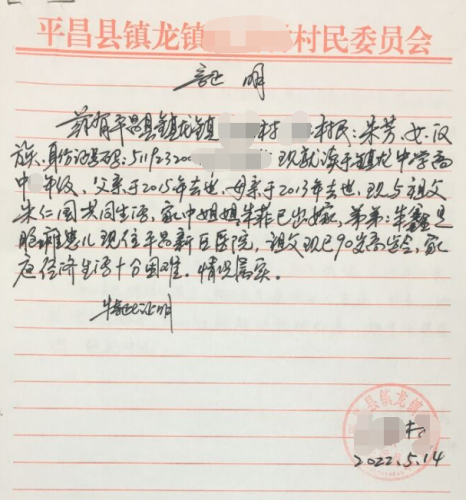 平昌县镇龙镇 村民委员会
证 明
兹有平昌县镇龙镇 村 村民：朱芳，女，汉
族，身份证号码：511923200 现就读于镇龙中学高
中 年级，父亲于2015年去世，母亲于2013年去世，现与祖父
朱仁国共同生活，家中姐姐朱菲已出嫁，弟弟：朱鑫是
脑瘫患儿现住平昌新区医院，祖父现已90岁高龄，家
庭经济生活十分困难。情况属实。
特此证明
平昌县镇龙镇
村
2022.5.14